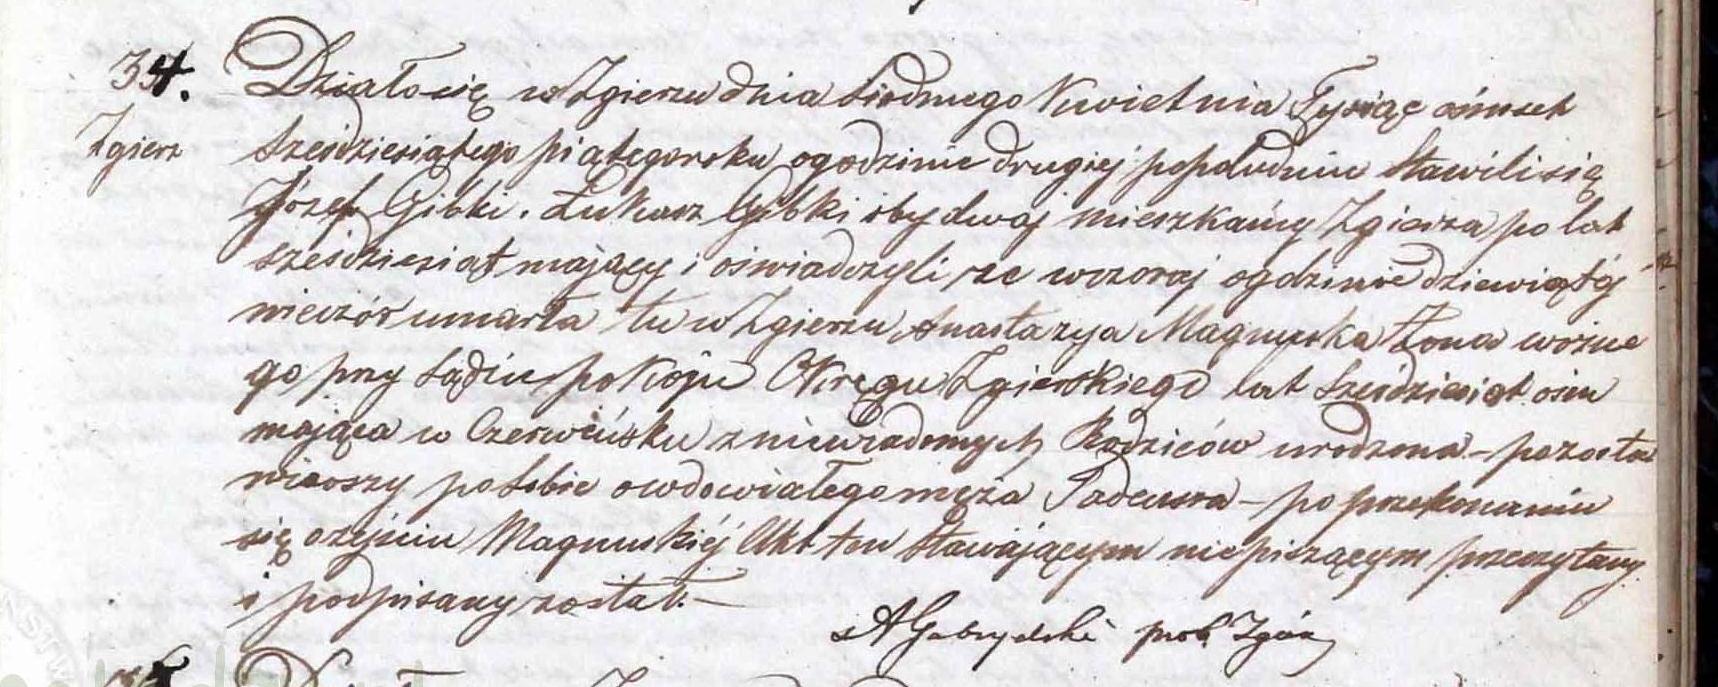 34.
Zgierz
Działo się w Zgierzu dnia siódmego Kwietnia Tysiąc ośmset
sześdziesiątego piątego roku o godzinie drugiej popołudniu Stawili się
Józef Gibki, Łukasz Gibki obydwaj mieszkańcy Zgierza po lat
sześdziesiąt mający i oświadczyli, że wczoraj o godzinie dziewiątéj
wieczór umarła tu w Zgierzu Anastazya Magnuska Żona woźne
go przy Sądzie pokoju Okręgu Zgierskiego lat sześdziesiąt ośm
mająca w Czerwińsku z niewiadomych Rodziców urodzona – pozosta
wiwszy po sobie owdowiałego męża Tadeusza – po przekonaniu
się o zejściu Magnuskiéj Akt ten Stawającym niepiszącym przeczytany
i podpisany został. –
A Gabryelski prob Zgier